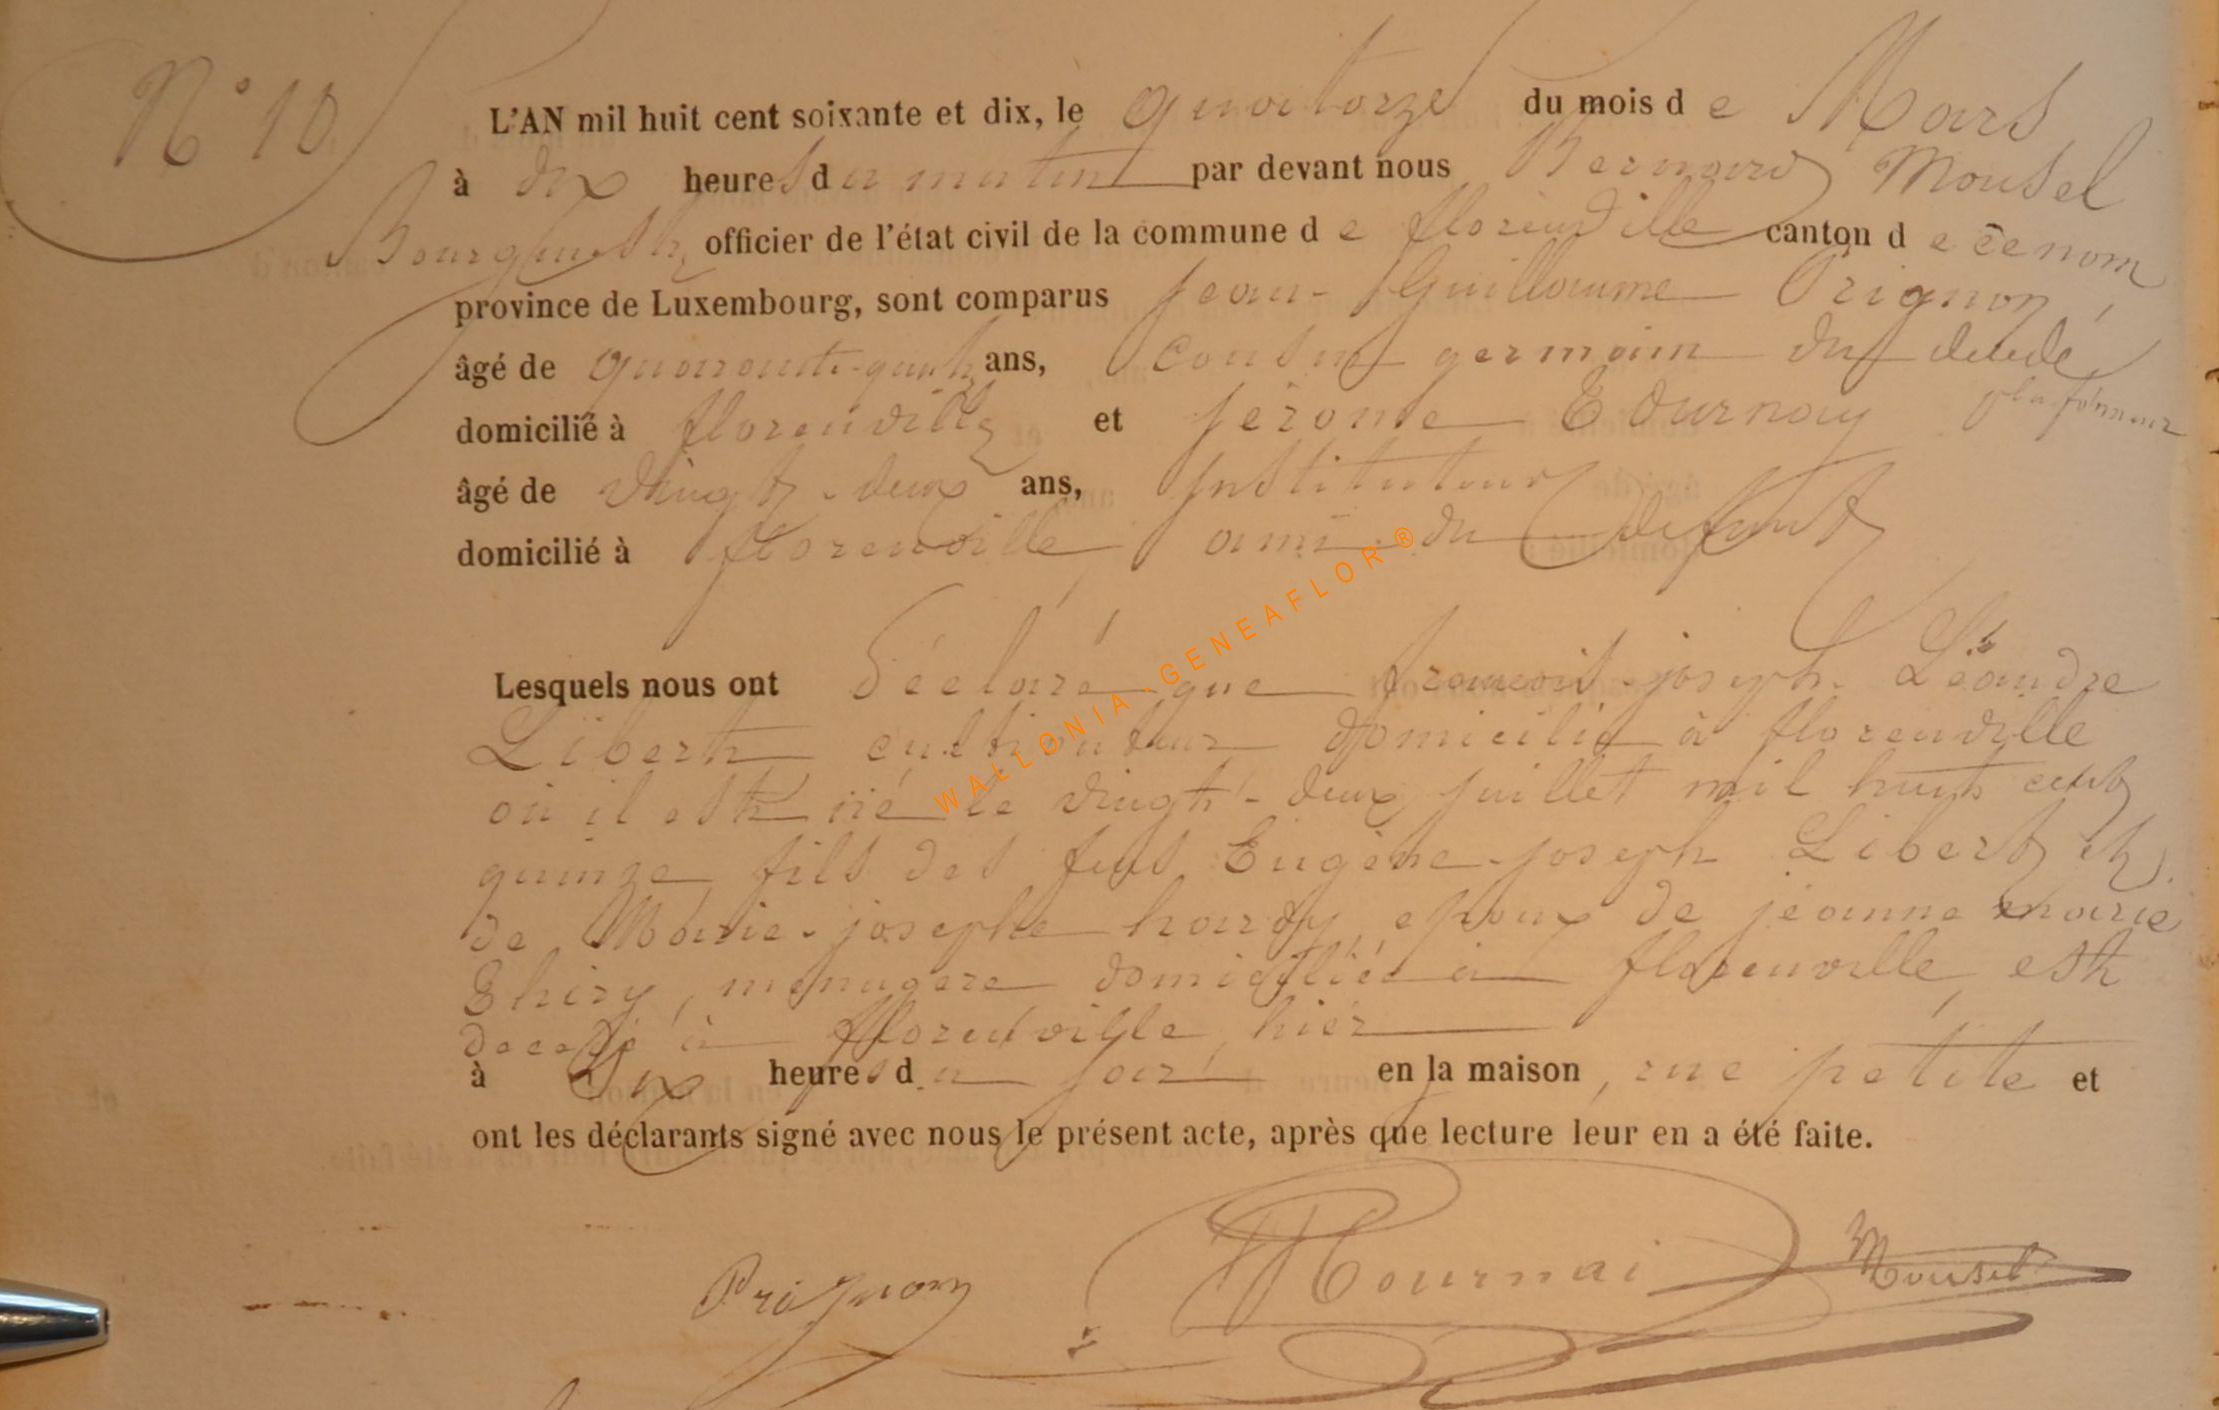 N° 10
L'AN mil huit cent soixante et dix, le quatorze du mois de Mars
à dix heures du matin par devant nous Bernard Mousel
Bourgmestre officier de l'état civil de la commune de florenville canton de ce nom
province de Luxembourg, sont comparus jean-Guillaume Prignon,
âgé de quarante-quatre ans, cousin germain du décédé
plafonneur
domicilié à florenville et jérome Tournay
âgé de vingt-deux ans, instituteur
domicilié à florenville ami du défunt
Lesquels nous ont déclaré que francois-joseph-Léandre
Libert cultivateur domicilié à florenville
où il est né le vingt-deux juillet mil huit cent
quinze fils des feus Eugène-joseph Libert et
de Marie-josephe hardy, époux de jeanne marie
Thiry, ménagère domiciliée à florenville, est
décédé à florenville, hier
à dix heures du soir en la maison, rue petite et
ont les déclarants signé avec nous le présent acte, après que lecture leur en a été faite.
Prignon Tournai Mousel
WALLONIA-GENEAFLOR®